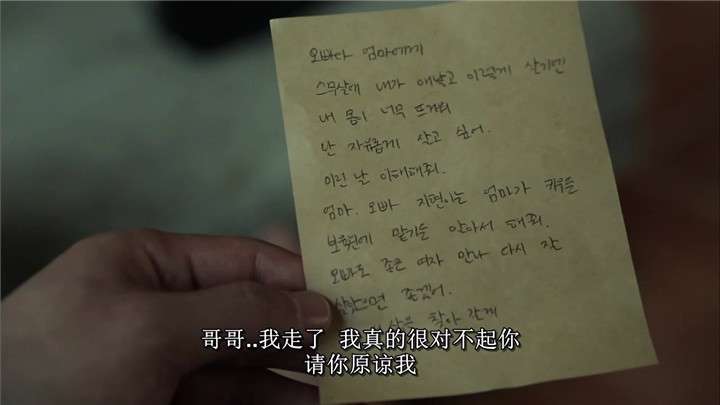 엄마에게
스무살에 내가 애낳고 이렇게 살기엔
내 몸이 너무 뜨거워
난 자유롭게 살고 싶어.
이런 날 이해해줘.
엄마. 오빠 엄마가 키우든
보육원에 맡기든 알아서 해줘.
오빠도 좋은 여자 만나 다시 잘
살았으면 좋겠어.
찾아 갈게
哥哥..我走了 我真的很对不起你
请你原谅我